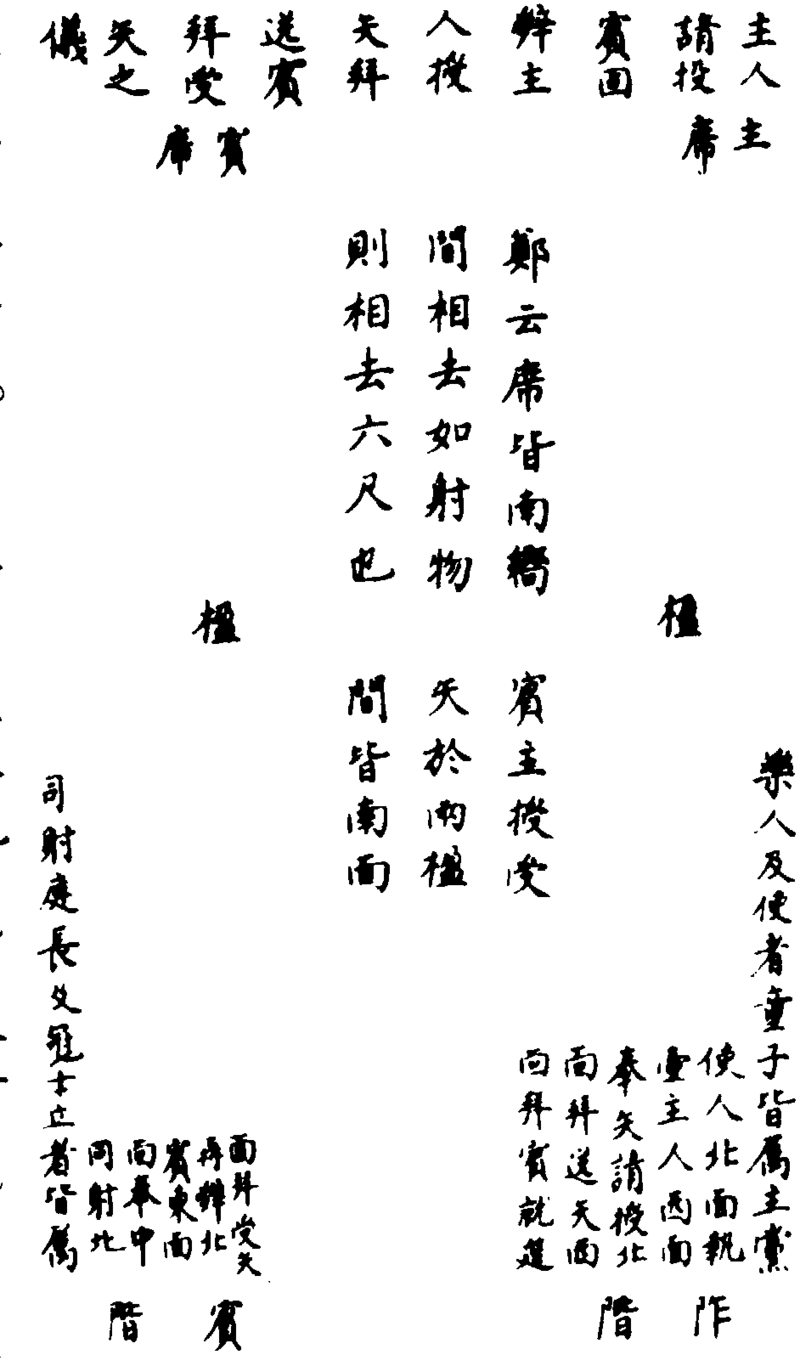 主人
請投
賓固
辭主
人授
矢拜
送賓
拜受
矢之
儀
主
席
賓
席
鄭云席皆南嚮
間相去如射物
則相去六尺也
楹
楹
賓主授受
矢於兩楹
間皆南面
樂人及使者童子皆屬主黨
使人北面執
壷主人西面
奉矢請投北
面拜送矢西
面拜賓就筵
阼
階
面拜受矢
再辭北
賓東面
面奉中
司射北
司射庭長及冠士立者皆屬
賓
階